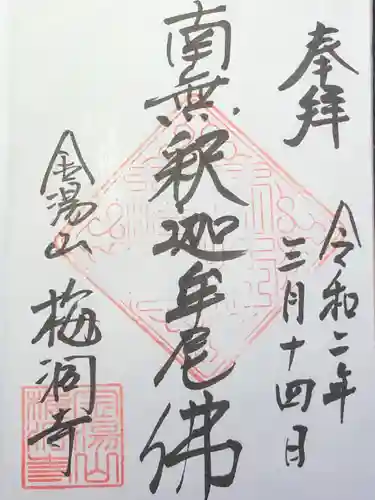 奉拝
令和二年
三月十四日
南無釈迦牟尼佛
金湯山
梅洞寺